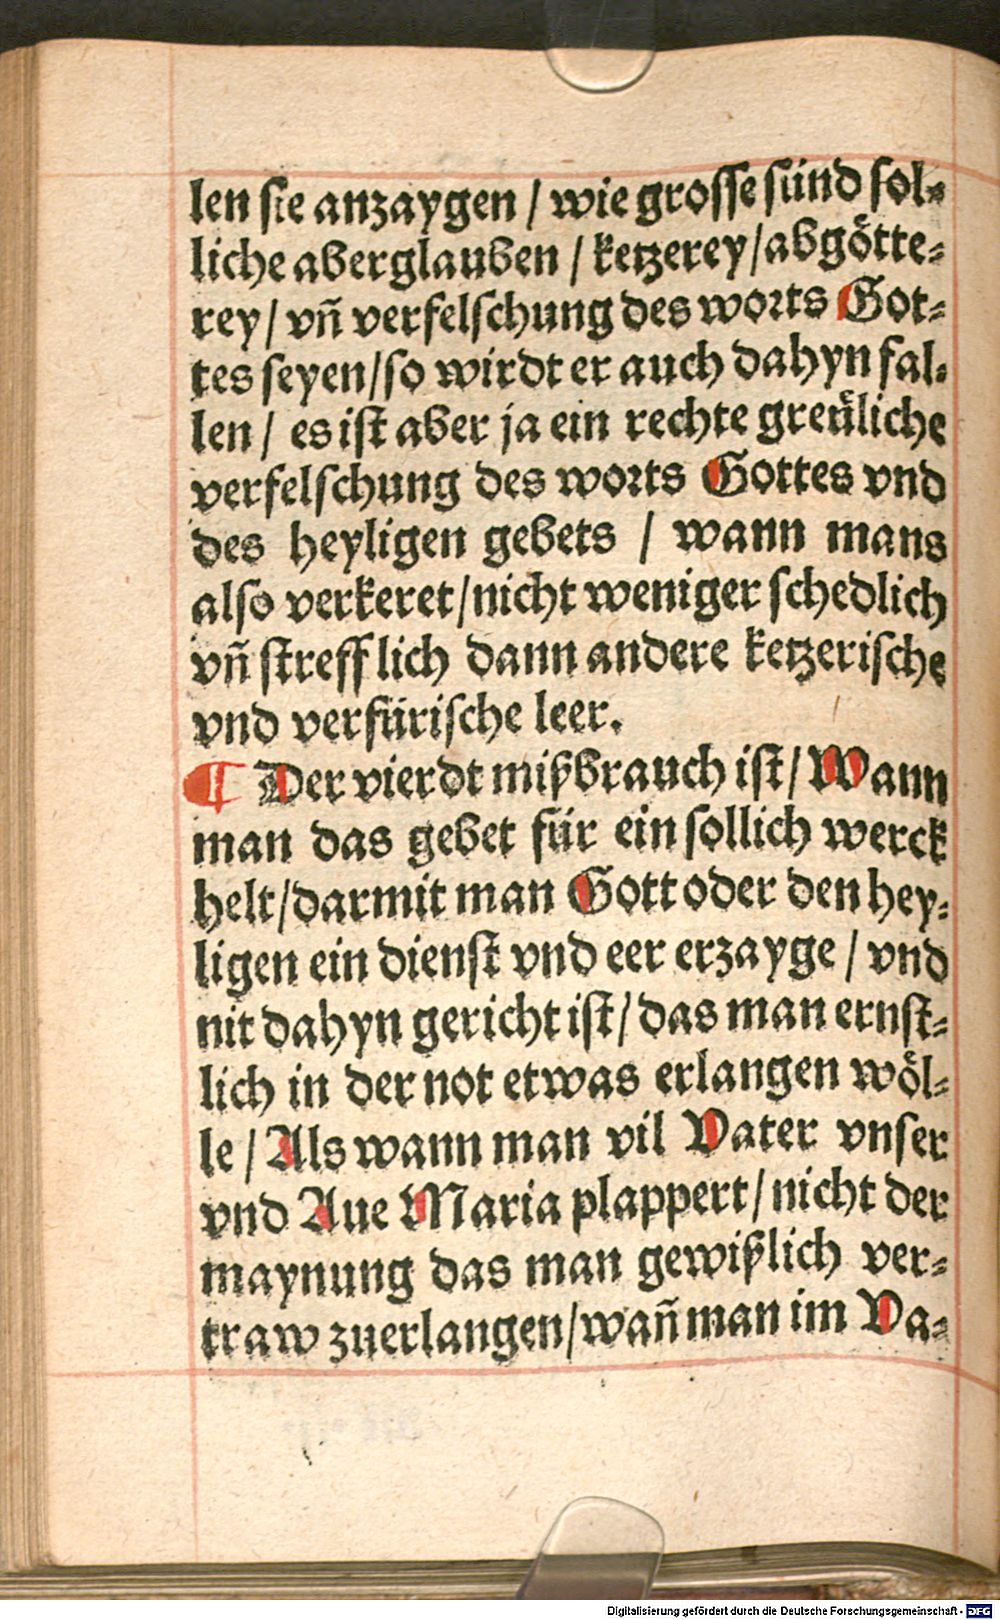 len sie anzaygen / wie grosse sünd sol⸗
liche aberglauben / ketzerey/abgötte⸗
rey/ vñ verfelschung des worts Got⸗
tes seyen/so wirdt er auch dahyn fal⸗
len/ es ist aber ja ein rechte greüliche
verfelschung des worts Gottes vnd
des heyligen gebets / wann mans
also verkeret/nicht weniger schedlich
vñ strefflich dann andere ketzerische
vnd verfürische leer.
¶ Der vierdt mißbrauch ist/ Wann
man das gebet für ein sollich werck
helt/darmit man Gott oder den hey⸗
ligen ein dienst vnd eer erzayge / vnd
nit dahyn gericht ist/ das man ernst⸗
lich in der not etwas erlangen wöl⸗
le / Als wann man vil Vater vnser
vnd Aue Maria plappert/ nicht der
maynung das man gewißlich ver⸗
traw zuerlangen/wañ man im Va⸗
Digitalisierung gefördert durch die Deutsche Forschungsgemeinschaft - DFG